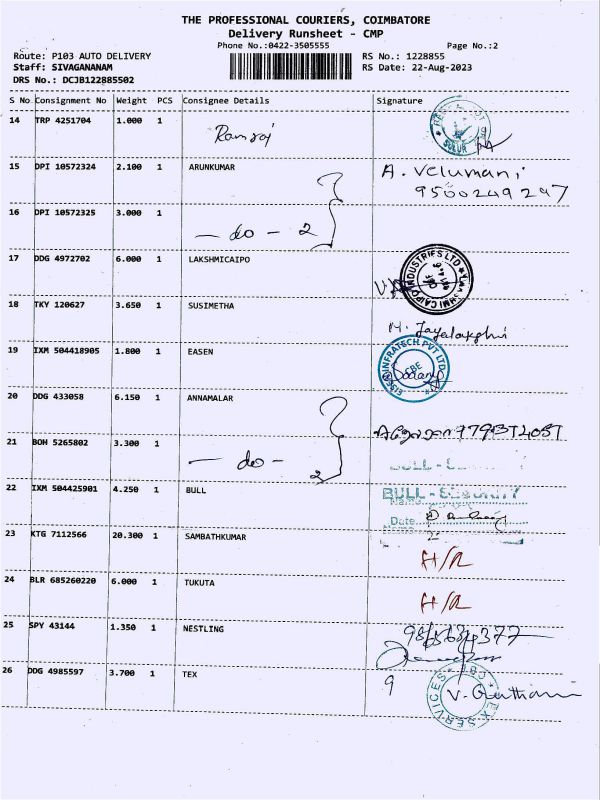 THE PROFESSIONAL COURIERS, COIMBATORE
Delivery Runsheet - CMP
Phone No.:0422-3505555 Page No.:2
Route: P103 AUTO DELIVERY RS No.: 1228855
Staff: SIVAGANANAM RS Date: 22-Aug-2023
DRS No.: DCJB122885502
S No Consignment No Weight PCS Consignee Details Signature
14 TRP 4251704 1.000 1 Ramraj
SULUR
15 DPI 10572324 2.100 1 ARUNKUMAR A. Velumani
9500249297
16 DPI 10572325 3.000 1 - do - 2
17 DDG 4972702 6.000 1 LAKSHMICAIPO LAKSHMI CAIPO INDUSTRIES LTD
18 TKY 120627 3.650 1 SUSIMETHA M. Jayalakshmi
19 IXM 504418905 1.800 1 EASEN INFRATECH PVT LTD
CBE
20 DDG 433058 6.150 1 ANNAMALAR
21 BOH 5265802 3.300 1 - do - 2
22 IXM 504425901 4.250 1 BULL BULL - SECURITY
Date
23 KTG 7112566 20.300 1 SAMBATHKUMAR H/R
24 BLR 685260220 6.000 1 TUKUTA H/R
25 SPY 43144 1.350 1 NESTLING
26 DDG 4985597 3.700 1 TEX 9 SERVICES